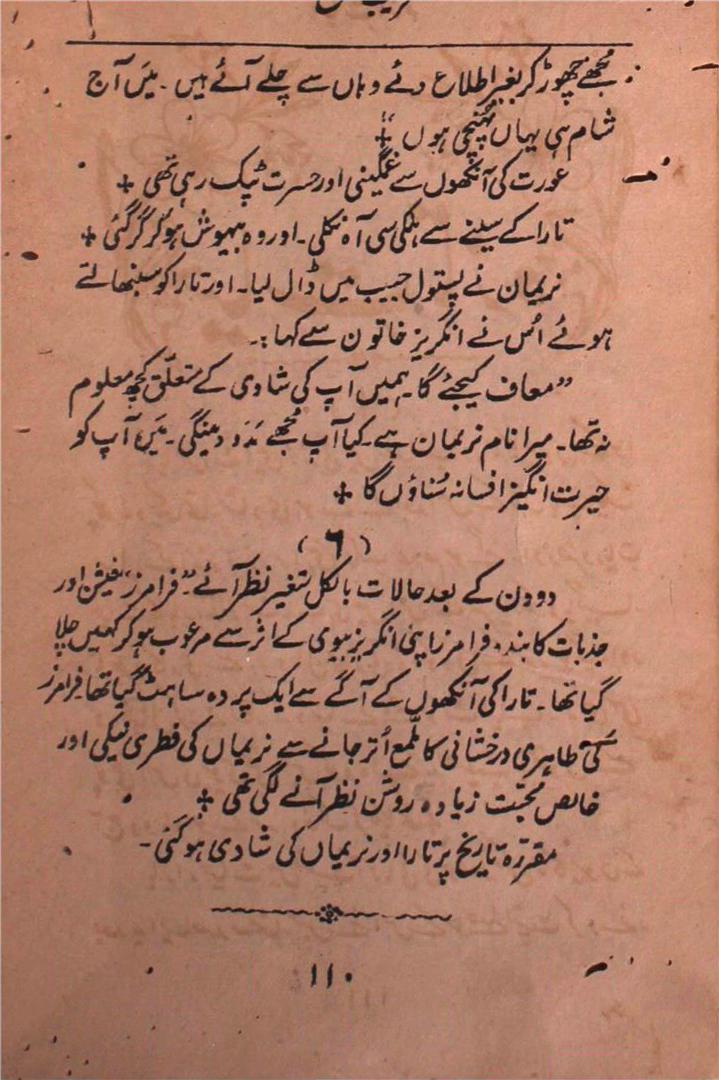 مجھے چھوڑ کر بغیر اطلاع دئے وہاں سے چلے آئے ہیں۔ میَں آج
شام ہی یہاں پہنچی ہوں"
عورت کی آنکھوں سے غمگینی اور حسرت ٹپک رہی تھی
تارا کے سینے سے ہلکی سی آہ نکلی۔ اور وہ بیہوش ہو کر گر گئی
نریمان نے پستول جیب میں ڈال لیا۔ اور تارا کو سنبھالتے
ہوئے اُس نے انگریز خاتون سے کہا:۔
"معاف کیجئے گا۔ ہمیں آپ کی شادی کے متعلّق کچھ معلوم
نہ تھا۔ میرا نام نریمان ہے۔ کیا آپ مجھے مَدَد دینگی۔ میَں آپ کو
حیرت انگیز افسانہ سُناؤں گا
(٦)
دو دن کے بعد حالات بالکل متغیر نظر آئے۔ "فرامرز" فیشن اور
جذبات کا بندہ فرامرز اپنی انگریز بیوی کے اثر سے مرعوب ہو کر کہیں چلا
گیا تھا۔ تارا کی آنکھوں کے آگے سے ایک پردہ سا ہٹ گیا تھا فرامرز
کی ظاہری درخشانی کا ملمّع اُتر جانے سے نریماں کی فطری نیکی اور
خالص محبّت زیادہ روشن نظر آنے لگی تھی
مقررّہ تاریخ پر تارا اور نریماں کی شادی ہو گئی۔
١١٠